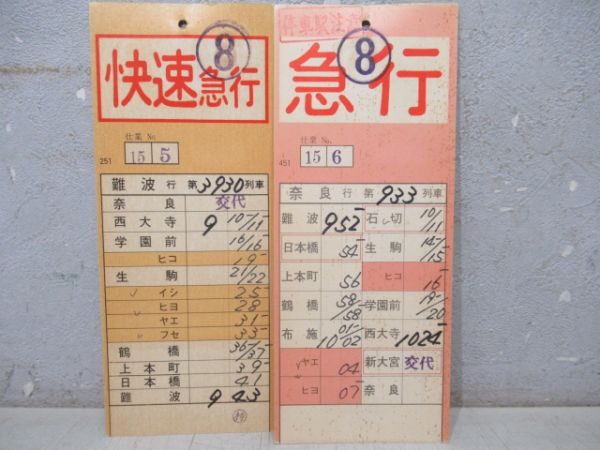 ⑧
快速急行
仕業 No.
251
15 5
難波 行 第3930列車
奈良 交代
西大寺 9 10/11
学園前 16/16
ヒコ 19
生駒 21/22
イシ 25
ヒヨ 28
ヤエ 31
フセ 33
鶴橋 36/37
上本町 39
日本橋 41
難波 9 43
停車駅注意
⑧
急行
仕業 No.
451
15 6
奈良 行 第 933 列車
難波 952
日本橋 54
上本町 56
鶴橋 58/58
布施 1001/02
ヤエ 04
ヒヨ 07
石切 10/11
生駒 14/15
ヒコ 16
学園前 19/20
西大寺 1024
新大宮 交代
奈良